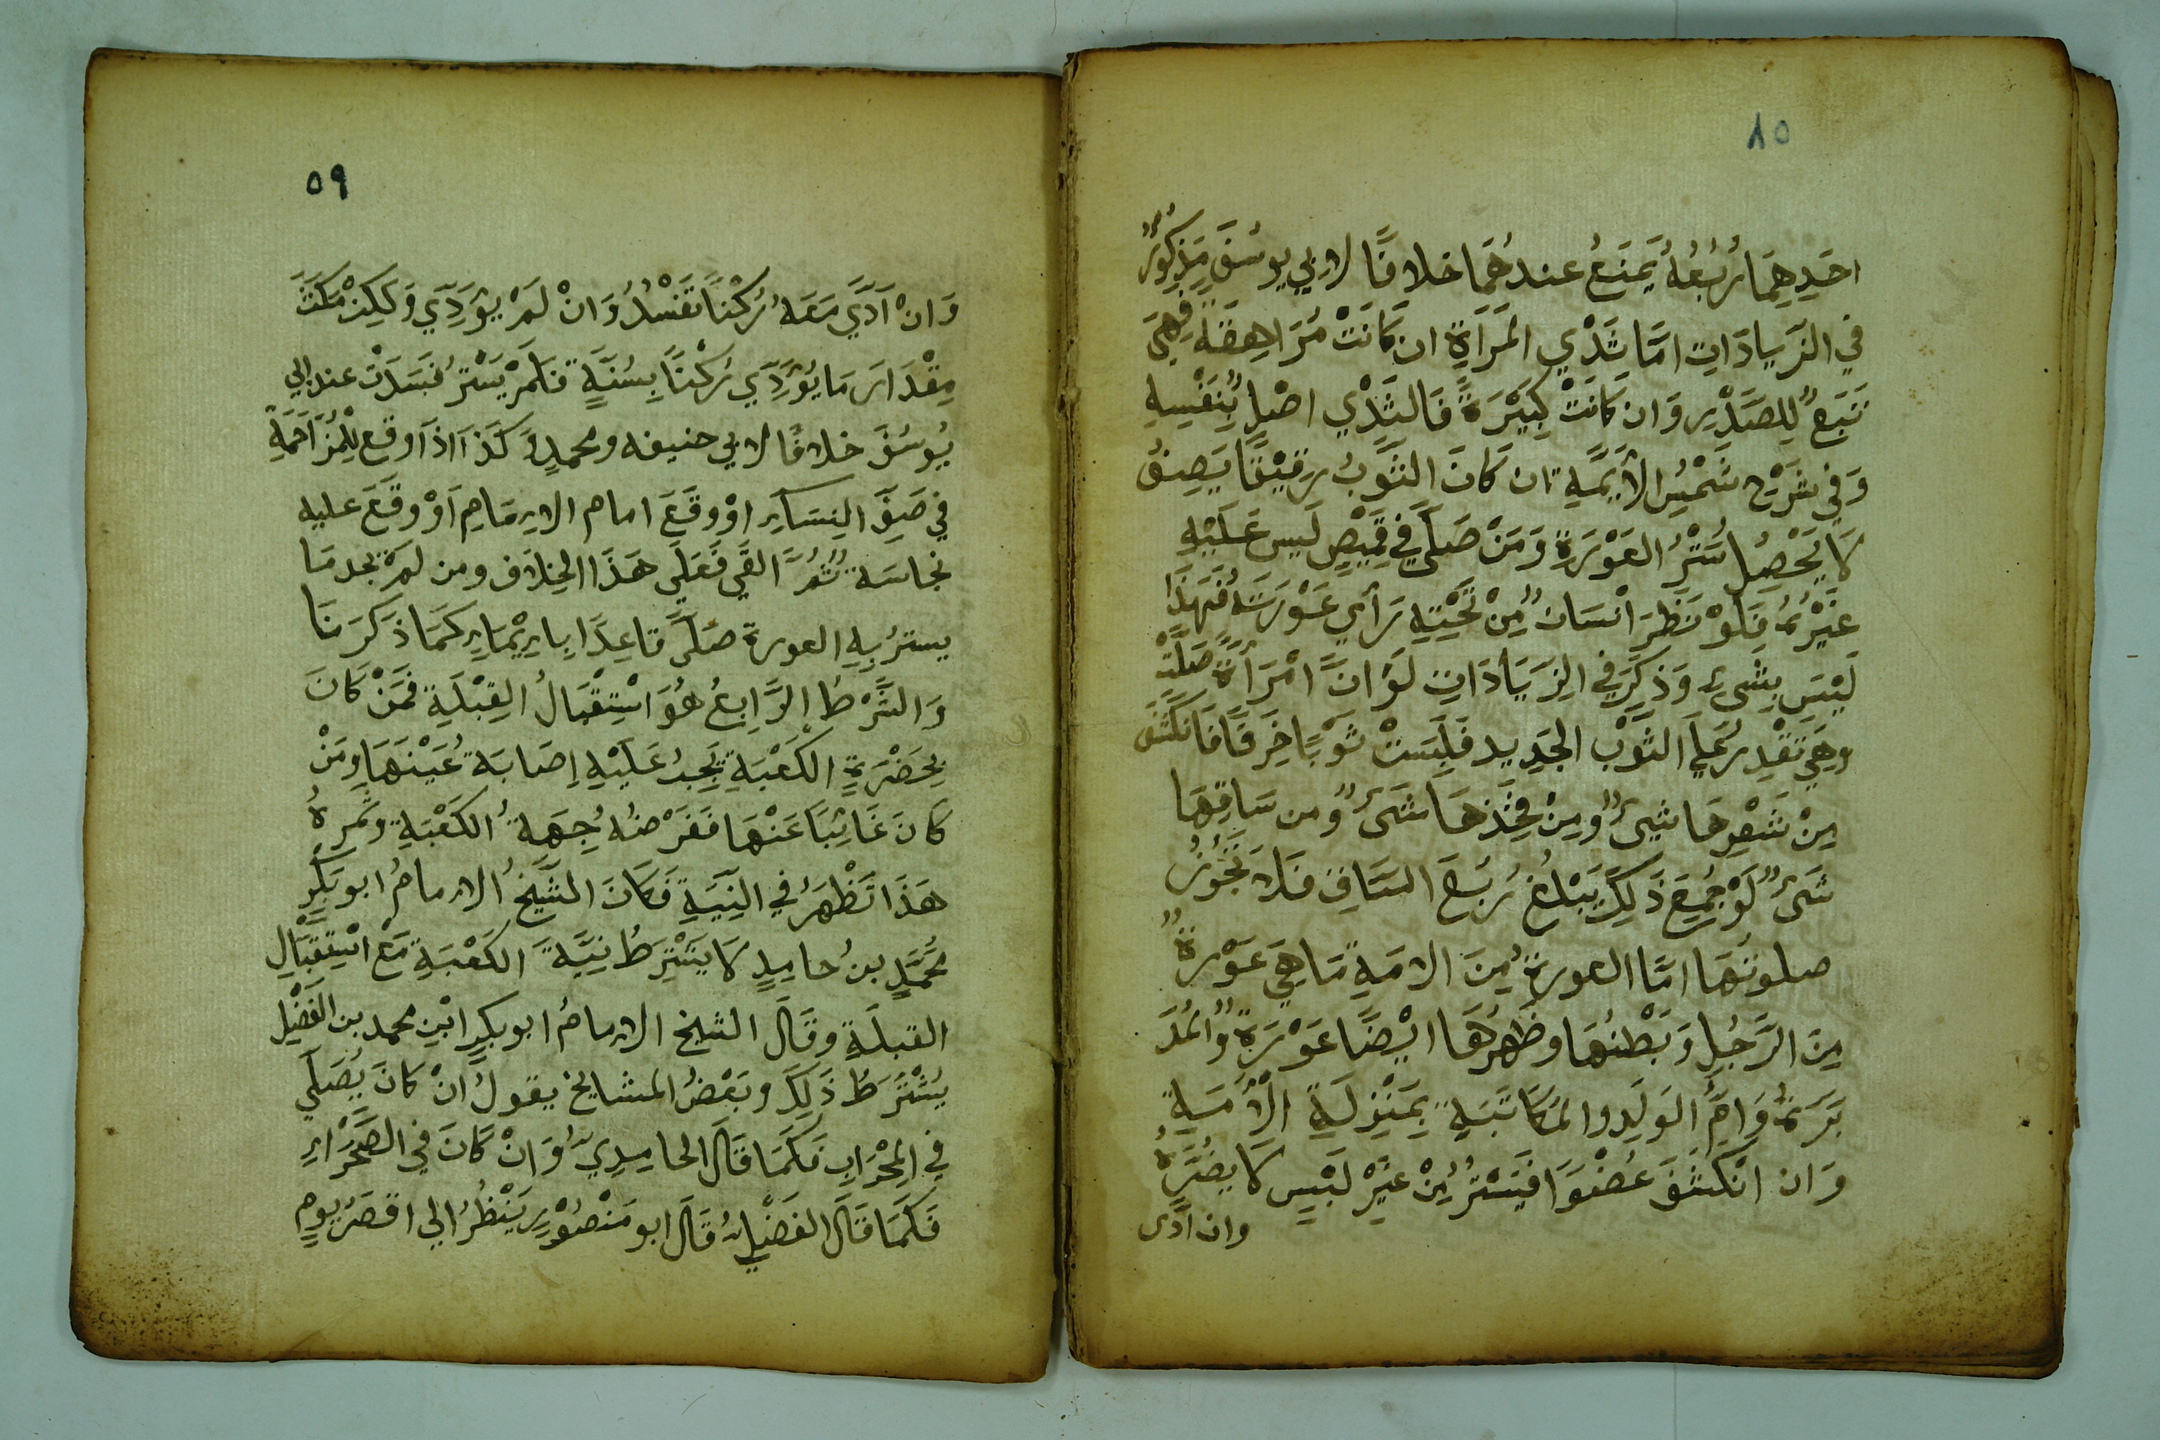 ٨٥
احَدِهِمَا رُبُعُهُ يَمنَعُ عندهُمَا خلافًا لابي يوسُفَ مَذكُورٌ
في الزّيادَاتِ امَّا ثَدْي المَرَاةِ ان كَانَتْ مُرَاهِقَةً فهِيَ
تَبَعٌ لِلصَّدْرِ وَان كَانَتْ كَبِيْرَةً فَالثَدْي اصْلٌ بِنَفْسِهِ
وَفِي شَرْحِ شَمْسِ الأَيِمَّةِ ان كَانَ الثَّوبُ رقِيْقًا يَصِفُ
لَا يَحْصُلُ سَتْرُ العَوْرَةِ وَمَنْ صَلَّى فِي قَمِيْصٍ لَيس عَلَيْهِ
غَيْرُهُ فَلَوْ نَظَرَ انْسَانٌ مِنْ تَحْتِهِ رَآي عَوْرَتَهُ فَهَذَا
لَيْسَ بِشَيْءٍ وَذُكِرَ فِي الزِيَادَاتِ لَوْ انَّ امْرَأَةً صَلَّتْ
وهِيَ تَقْدِرُ عَلَى الثَّوْبِ الجَدِيد فَلَبِسَتْ ثَوْبًا خَرِقًا فَانكَشَفَ
مِنْ شَعْرِهَا شيْءٌ ومِنْ فَخِذهَا شَيْءٌ ومن سَاقِهَا
شَيْءٌ لَوْ جُمِعَ ذَلِكَ يَبْلُغُ رُبُعَ السَاقِ فَلَا تَجُوزُ
صلوتُهَا امَّا العورةُ مِنَ الامَةِ مَا هِيَ عَوْرةٌ
مِنَ الرَّجُلِ وَبَطْنُهَا وظَهرُهَا ايْضًا عَوْرَةٌ وَالمُدَ
بَّرَةُ وَامُّ الوَلَدِ والمُكَاتَبَةِ بِمَنْزِلَةِ الْأَمَةِ
وَان انْكَشَفَ عُضْوًا فَيَسْتُرُ مِنْ غَيْرِ لَبْسٍ لَا يَضُرَّهُ
وان ادّى
٥٩
وَانْ اَدَّي مَعَهُ رُكْنًا تَفْسُدُ وَانْ لَمْ يؤدِّي وَلَكِنْ مَكَثَ
مِقْدَارَ مَا يُؤدِّي رُكْنًا بِسُنَّةٍ فَلَمْ يَسْتُرْ فَسَدَتْ عند ابي
يُوسُفَ خلافًا لابي حنيفه ومحمدٍ وَكَذَا اذَا وقع لِلْمُزَاحَمَةِ
في صَفِّ النِسَاءِ اوْ وقَعَ امام الامَامِ اَوْ وقَعَ عليه
نجاسَة ثُمَّ القَي فَعَلَي هَذَا الخِلَاف ومن لمْ يجد مَا
يسترُ بِهِ العورة صَلَّى قاعِدًا بايمَاءٍ كمَا ذكَرنَا
وَالشَّرْطُ الرَّابِعُ هُوَ اسْتِقْبَالُ القِبْلَةِ فَمَنْ كَانَ
بِحَضْرَةِ الكَعْبَةِ يَجِبُ عَلَيْهِ اِصَابَةُ عَيْنِهَا وَمَنْ
كَانَ غَائِبًا عَنْهَا فَفَرْضُهُ جِهَةُ الكَعْبَةِ وثَمرةُ
هَذَا تَظْهَرُ فِي النِيَّةِ فَكَانَ الشَّيْخُ الامامُ ابو بَكْرٍ
مُحَمَّدٍ بنُ حامِدٍ لَا يَشْتَرِطُ نِيَّةَ الكَعْبَةِ مَعْ اسْتِقْبَالِ
القبلَةِ وقَالَ الشيخ الامامُ ابو بكرٍ ابْنِ محمد بن الفَضْلِ
يُشْتَرَطُ ذَلِكَ وبَعْضُ المشايخ يقولُ انْ كانَ يُصَلِّي
في المِحْرَابِ فَكَمَا قَالَ الحامِدِيّ وَانْ كَانَ فِي الصَّحْرَاءِ
فَكَمَا قَالَ الفَضْلِيُّ قَالَ ابو مَنْصُوْرٍ يَنْظُرُ الي اقصَرِ يومٍ